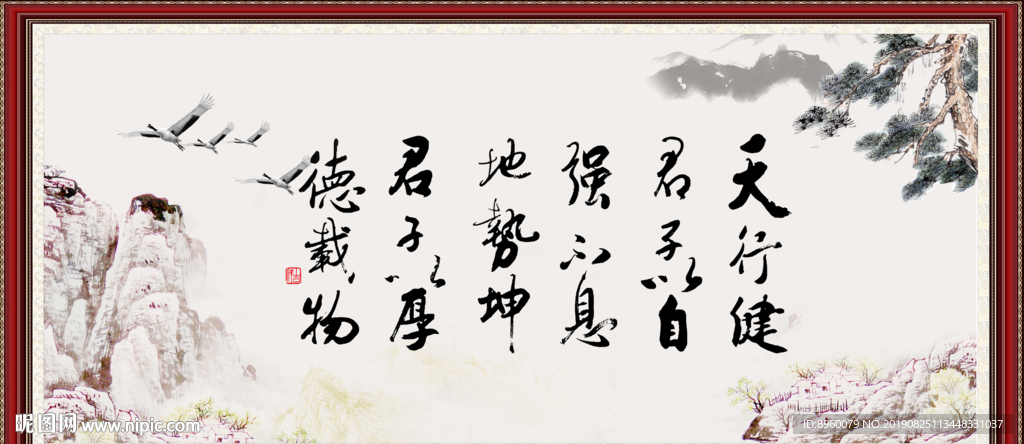 天行健
君子以自
强不息
地势坤
君子以厚
德载物
昵图网 www.nipic.com
ID:8960079 NO:20190825113448331037